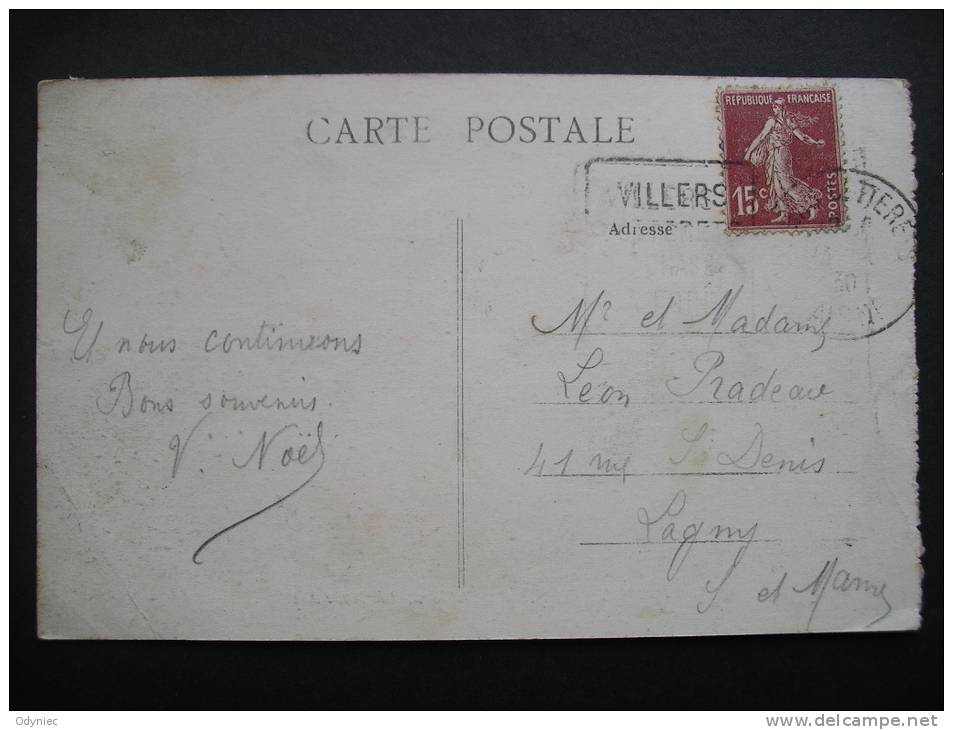 CARTE POSTALE
REPUBLIQUE FRANÇAISE
15c
POSTES
VILLERS
Adresse
30
Et nous continuons
Bons souvenirs.
V. Noël
Mr et Madame
Léon Pradeau
41 rue St Denis
Lagny
S et Marne
Odyniec
www.delcampe.net